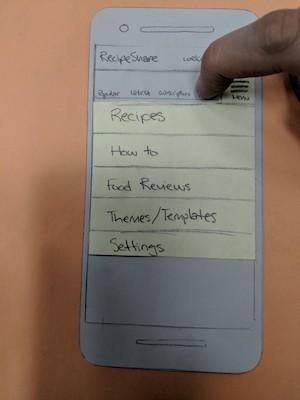 RecipeShare
Popular Latest Subscriptions
Menu
Recipes
How to
Food Reviews
Themes/Templates
Settings